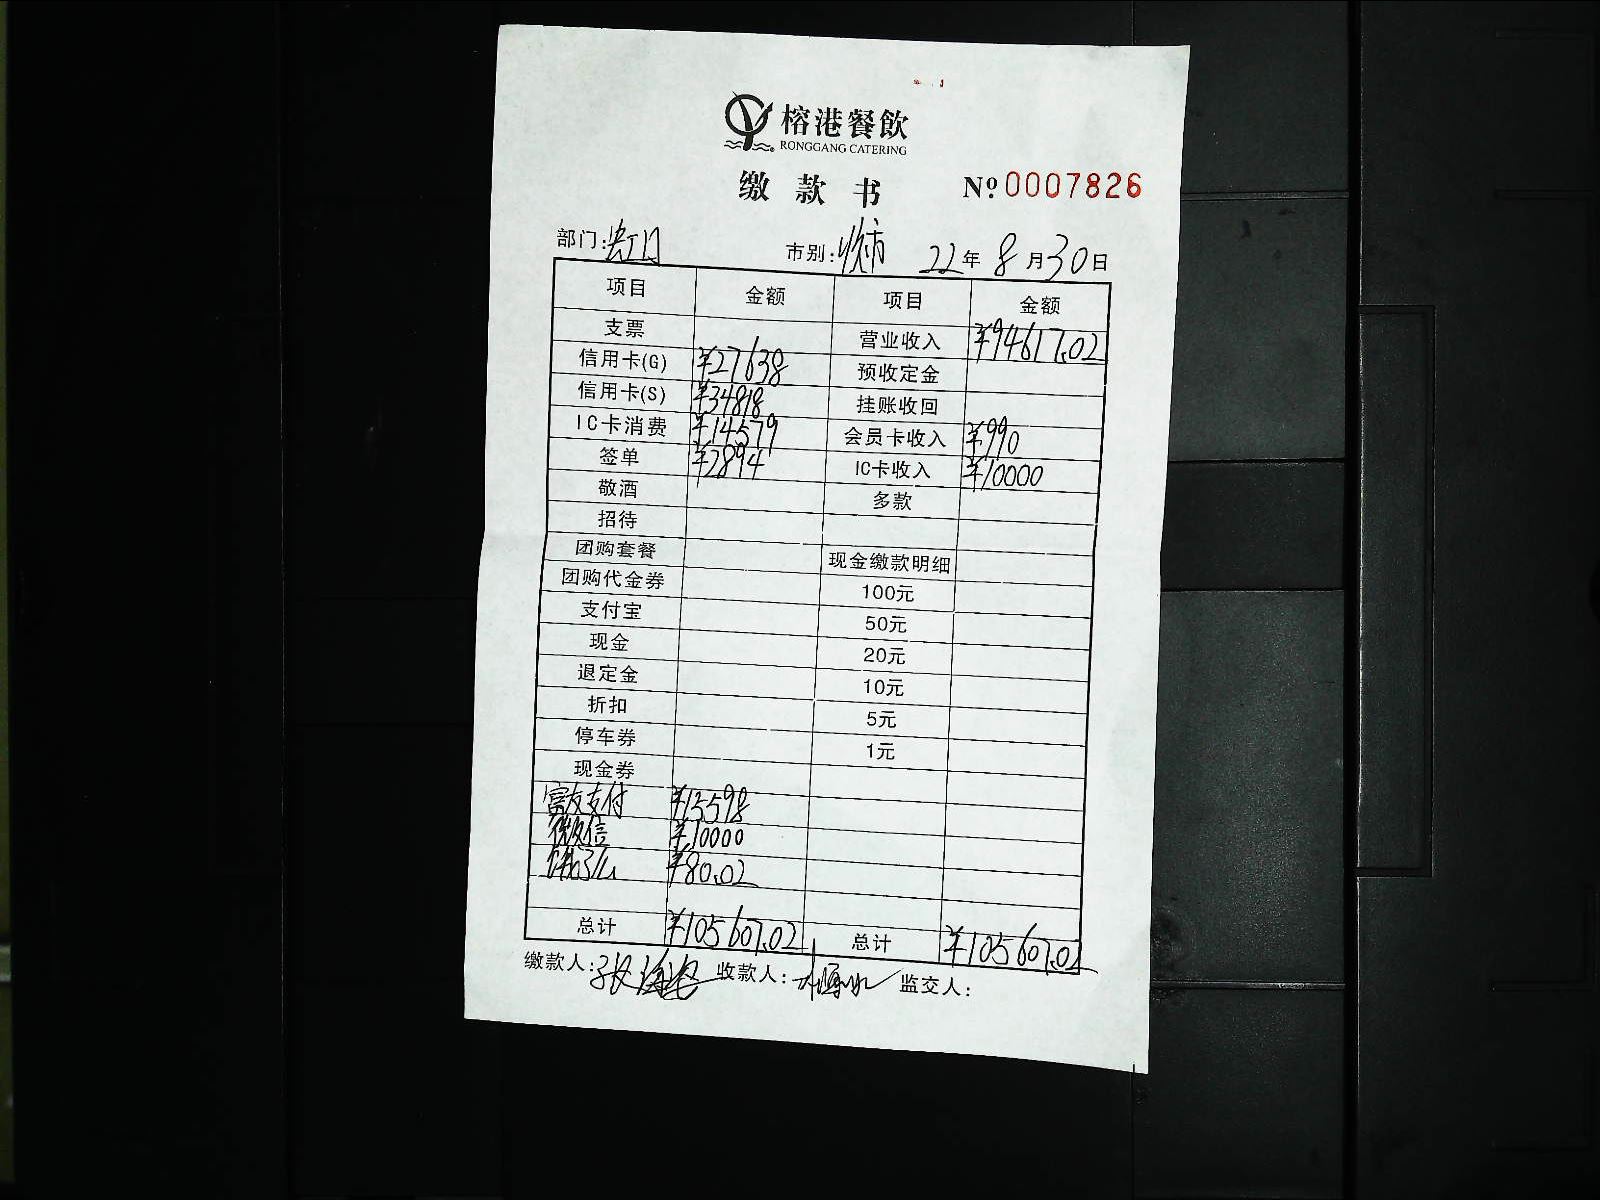 榕港餐飲
RONGGANG CATERING
缴款书 №0007826
部门: 市别:晚市 22年8月30日
项目 金额 项目 金额
支票 营业收入 ¥94617.02
信用卡(G) ¥27638 预收定金
信用卡(S) ¥34818 挂账收回
IC卡消费 ¥14579 会员卡收入 ¥990
签单 ¥2894 IC卡收入 ¥10000
敬酒 多款
招待
团购套餐 现金缴款明细
团购代金券 100元
支付宝 50元
现金 20元
退定金 10元
折扣 5元
停车券 1元
现金券
富友支付 ¥15598
微信 ¥10000
饿了么 ¥80.02
总计 ¥105607.02 总计 ¥105607.02
缴款人:张 收款人: 监交人: